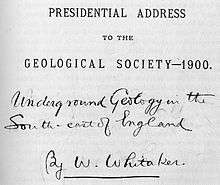 PRESIDENTIAL ADDRESS
TO THE
GEOLOGICAL SOCIETY—1900.
Underground Geology in the
South-east of England
By W. Whitaker.